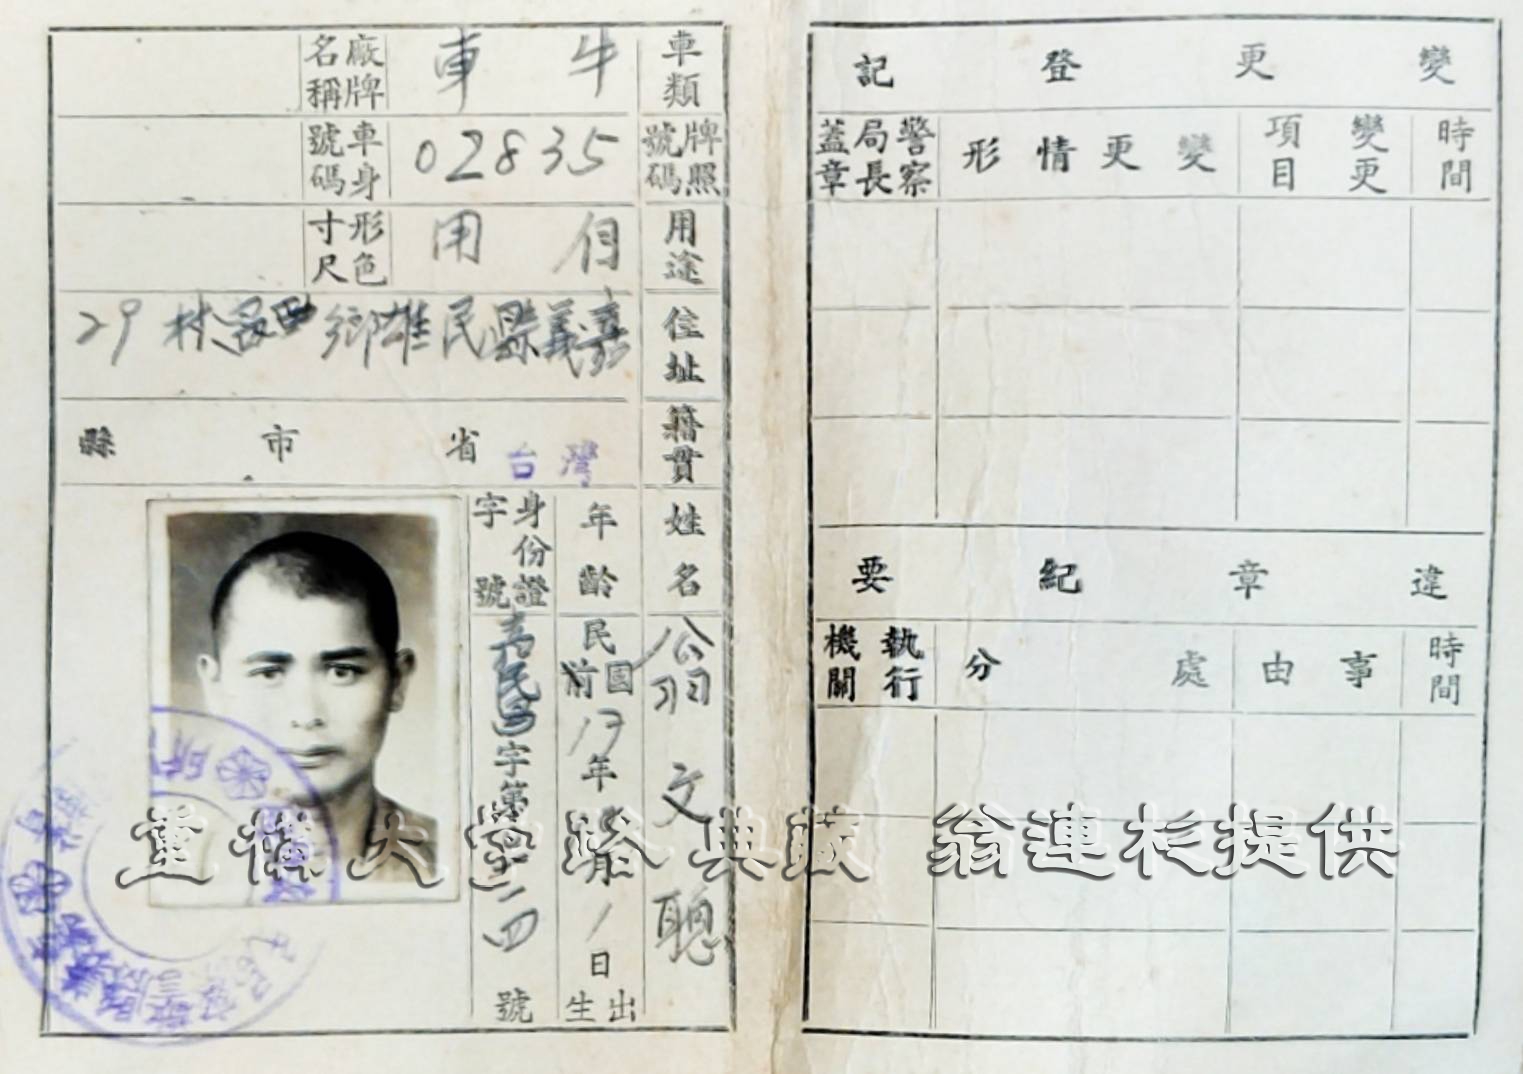 車類
牛車
廠牌名稱
牌照號碼
02835
車身號碼
用途
自用
形色尺寸
住址
嘉義縣民雄鄉西昌村29
籍貫
台灣省 市 縣
姓名
翁文聰
年齡
民國前17年
1日
出生
身份證字號
字第
二四
號
變更登記
時間
變更項目
變更情形
警察局長蓋章
違章紀要
時間
事由
處分
執行機關
典藏 翁連杉提供